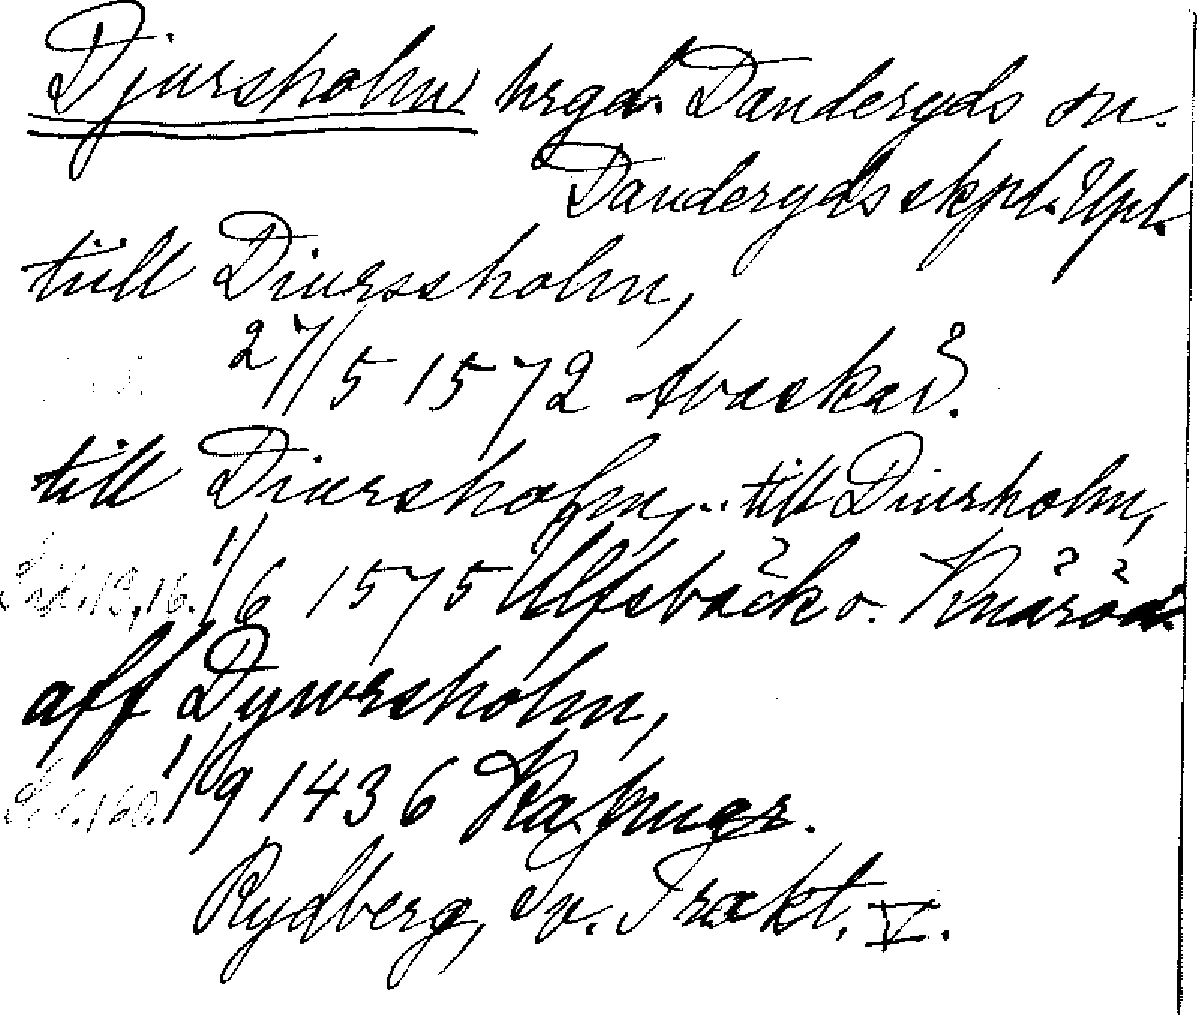 Djursholm hrgd. Danderyds sn.
Danderyds skpl. Upl.
till Diurssholm,
27/5 1572 Svaskär.
till Diursholm, .. till Diurholm,
1/6 1575 Ulfsbäck o. Knäröd.
aff Dywrsholm,
1/9 1436
Rydberg, Sv. Trakt. V.